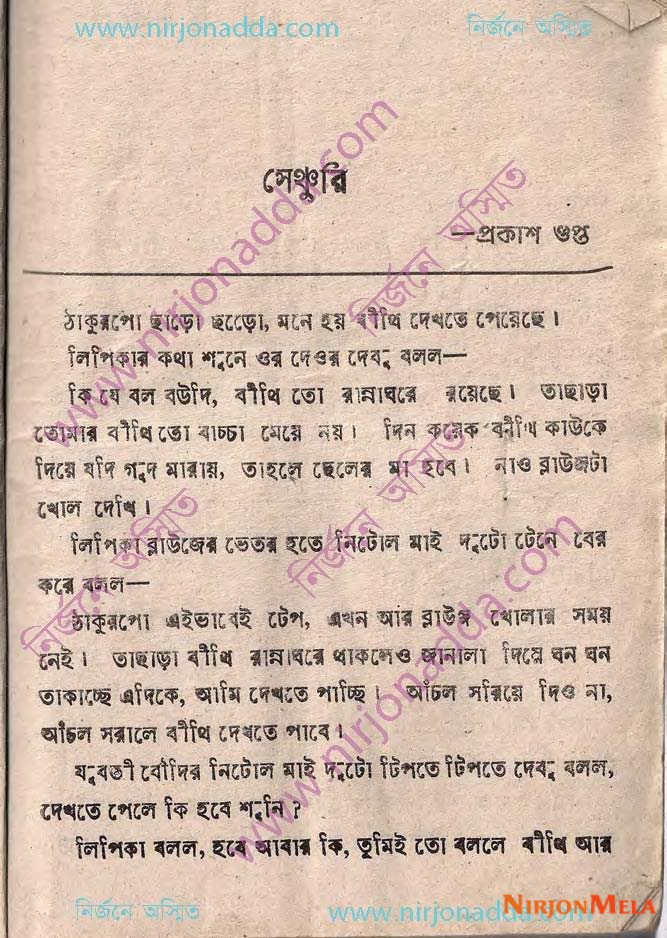 www.nirjonadda.com নির্জনে অস্মিত
সেঞ্চুরি
—প্রকাশ গুপ্ত
ঠাকুরপো ছাড়ো ছড়ো, মনে হয় বীথি দেখতে পেয়েছে।
লিপিকার কথা শুনে ওর দেওর দেবু বলল—
কি যে বল বউদি, বীথি তো রান্নাঘরে রয়েছে। তাছাড়া
তোমার বীথি তো বাচ্চা মেয়ে নয়। দিন কয়েক বীথি কাউকে
দিয়ে যদি গুদ মারায়, তাহলে ছেলের মা হবে। নাও ব্লাউজটা
খোল দেখি।
লিপিকা ব্লাউজের ভেতর হতে নিটোল মাই দুটো টেনে বের
করে বলল—
ঠাকুরপো এইভাবেই টেপ, এখন আর ব্লাউজ খোলার সময়
নেই। তাছাড়া বীথি রান্নাঘরে থাকলেও জানালা দিয়ে ঘন ঘন
তাকাচ্ছে এদিকে, আমি দেখতে পাচ্ছি। আঁচল সরিয়ে দিও না,
আঁচল সরালে বীথি দেখতে পাবে।
যুবতী বৌদির নিটোল মাই দুটো টিপতে টিপতে দেবু বলল,
দেখতে পেলে কি হবে শুনি ?
লিপিকা বলল, হবে আবার কি, তুমিই তো বললে বীথি আর
www.nirjonadda.com
নির্জনে অস্মিত
নির্জনে অস্মিত
নির্জনে অস্মিত
www.nirjonadda.com
NIRJONMELA
নির্জনে অস্মিত www.nirjonadda.com